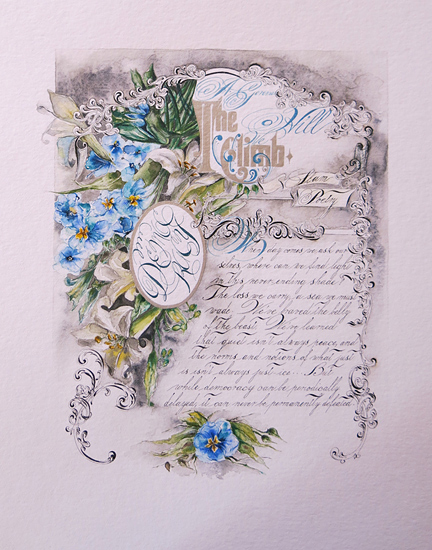 The Hill
We Climb
Slam
Poetry
When day comes we ask our
selves, where can we find light
in this never ending shade?
The loss we carry, a sea we must
wade. We've braved the belly
of the beast. We've learned
that quiet isn't always peace, and
the norms and notions of what just
is isn't always just-ice. But
while democracy can be periodically
delayed, it can never be permanently defeated